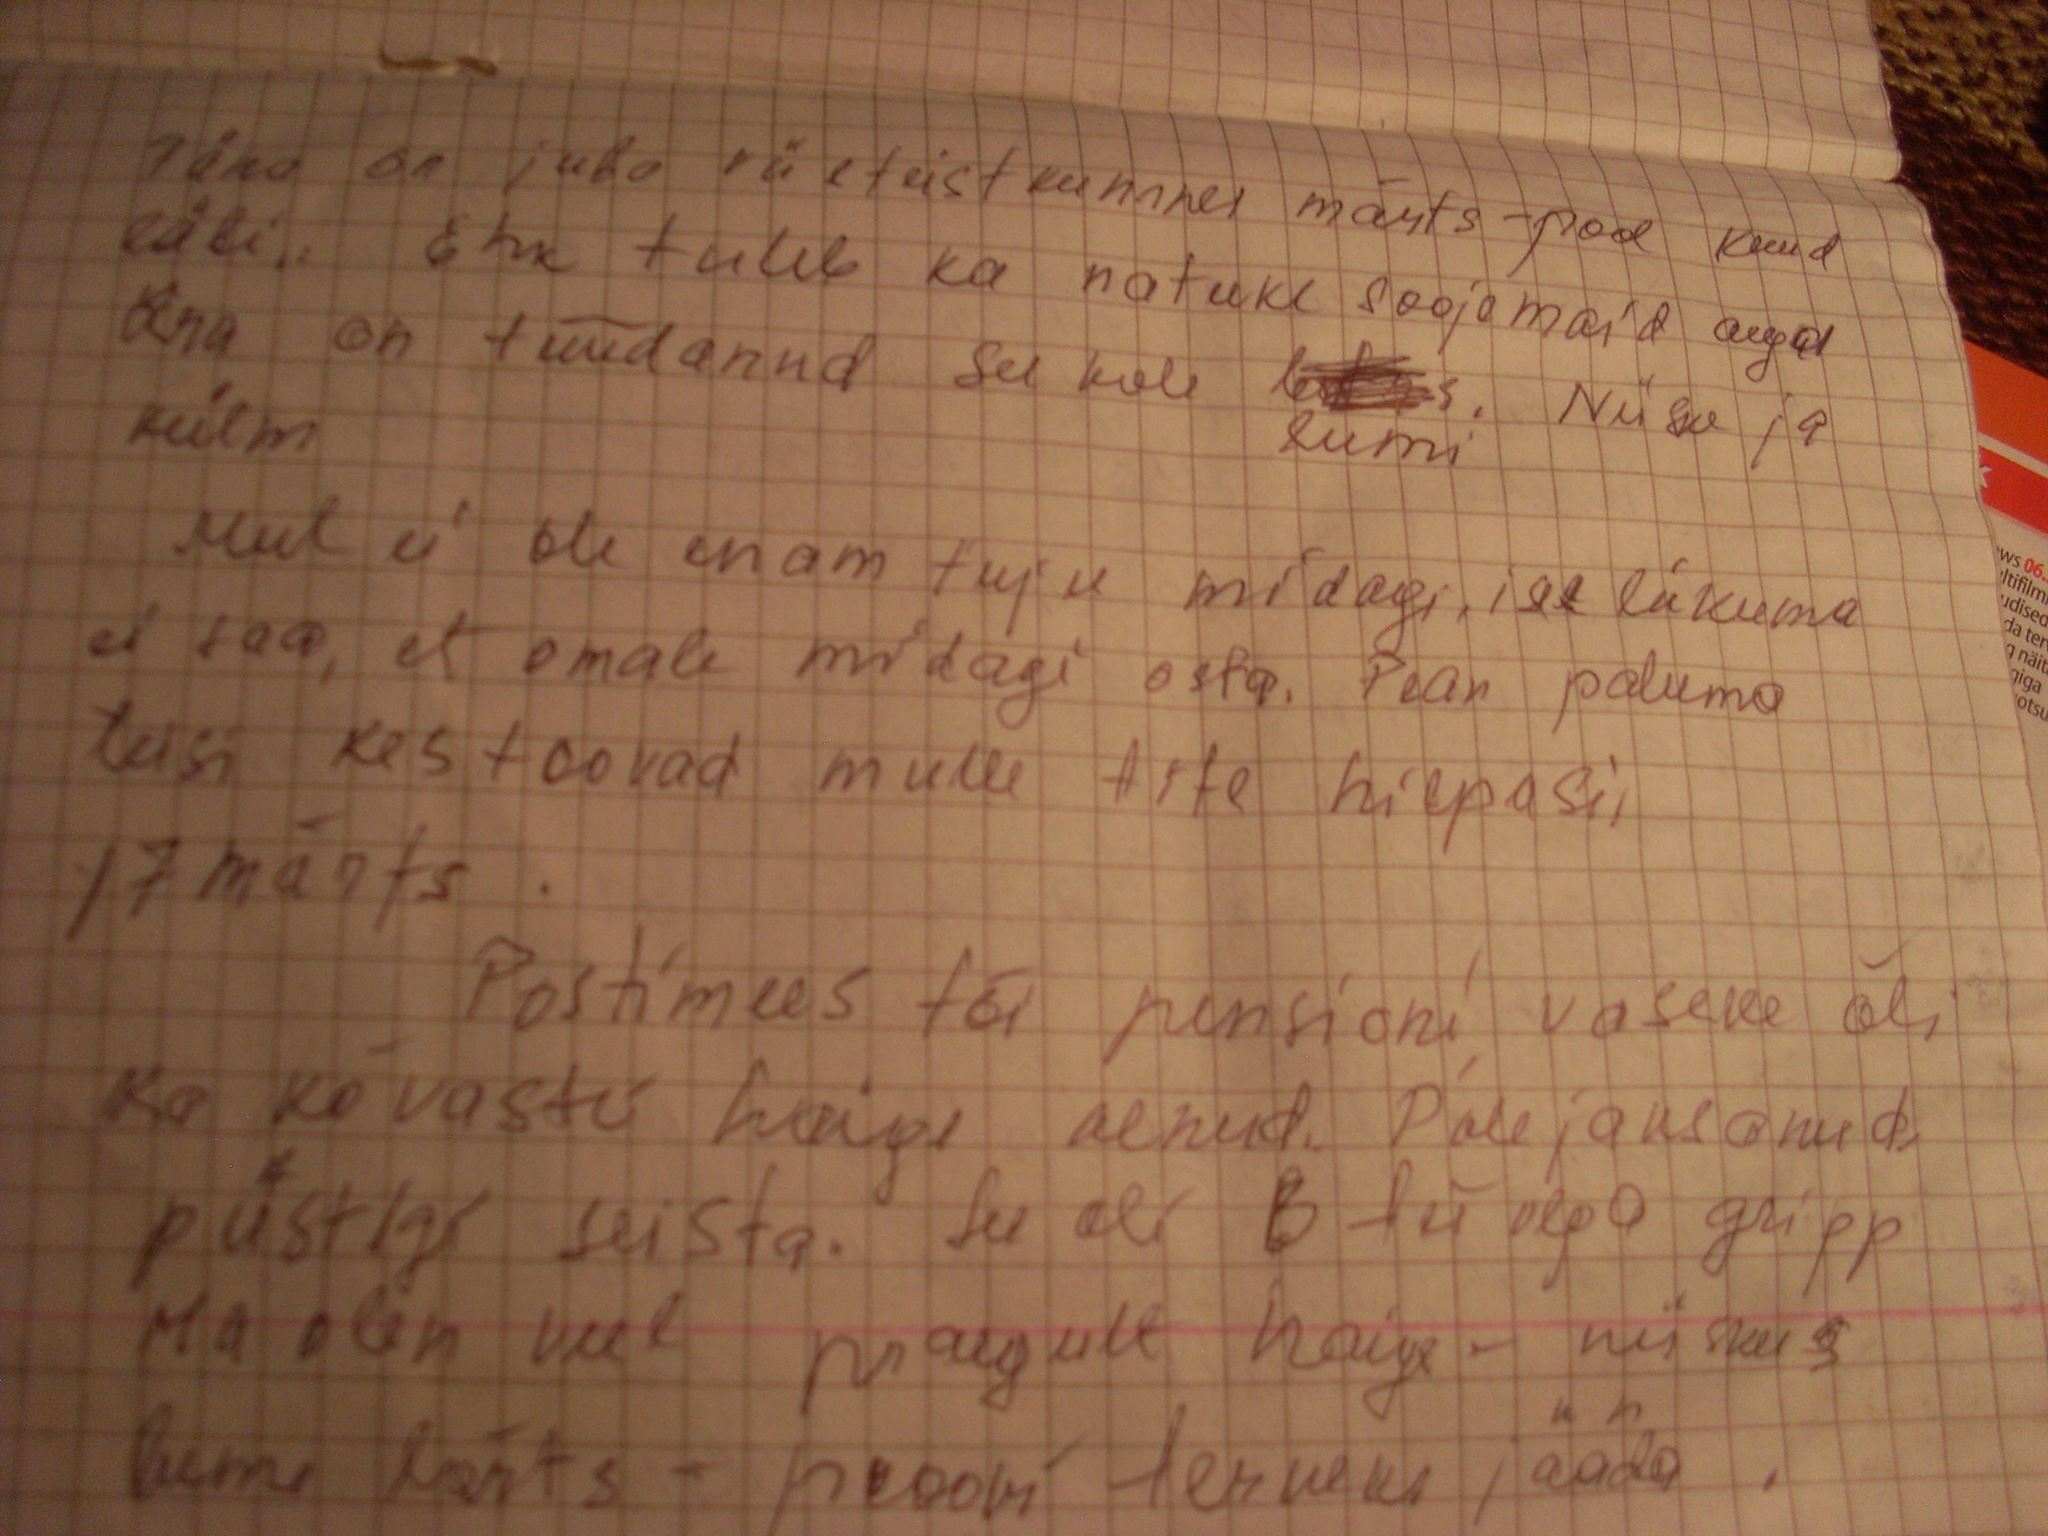 Täna on juba viieteistkümnes märts - pool kuud
läbi.. Ehk tuleb ka natuke soojemaid aegu
Ära on tüüdanud see kole lumi. Niiske ja
külm
Mul ei ole enam tuju midagi, ise liikuma
ei saa, et omale midagi osta. Pean paluma
teisi kes toovad mulle ette hiepasii
17 märts.
Postimees tõi pensioni vaseke oli
ka kõvasti haige olnud. Pole jaksanud
püstigi seista. See oli B tüübiga gripp
Ma olen veel praegult haige - niiskus
lume lärts - proovi terveks jääda.
ws 06.
ltifilmi
udised
da terv
näit
giga
otsu
k